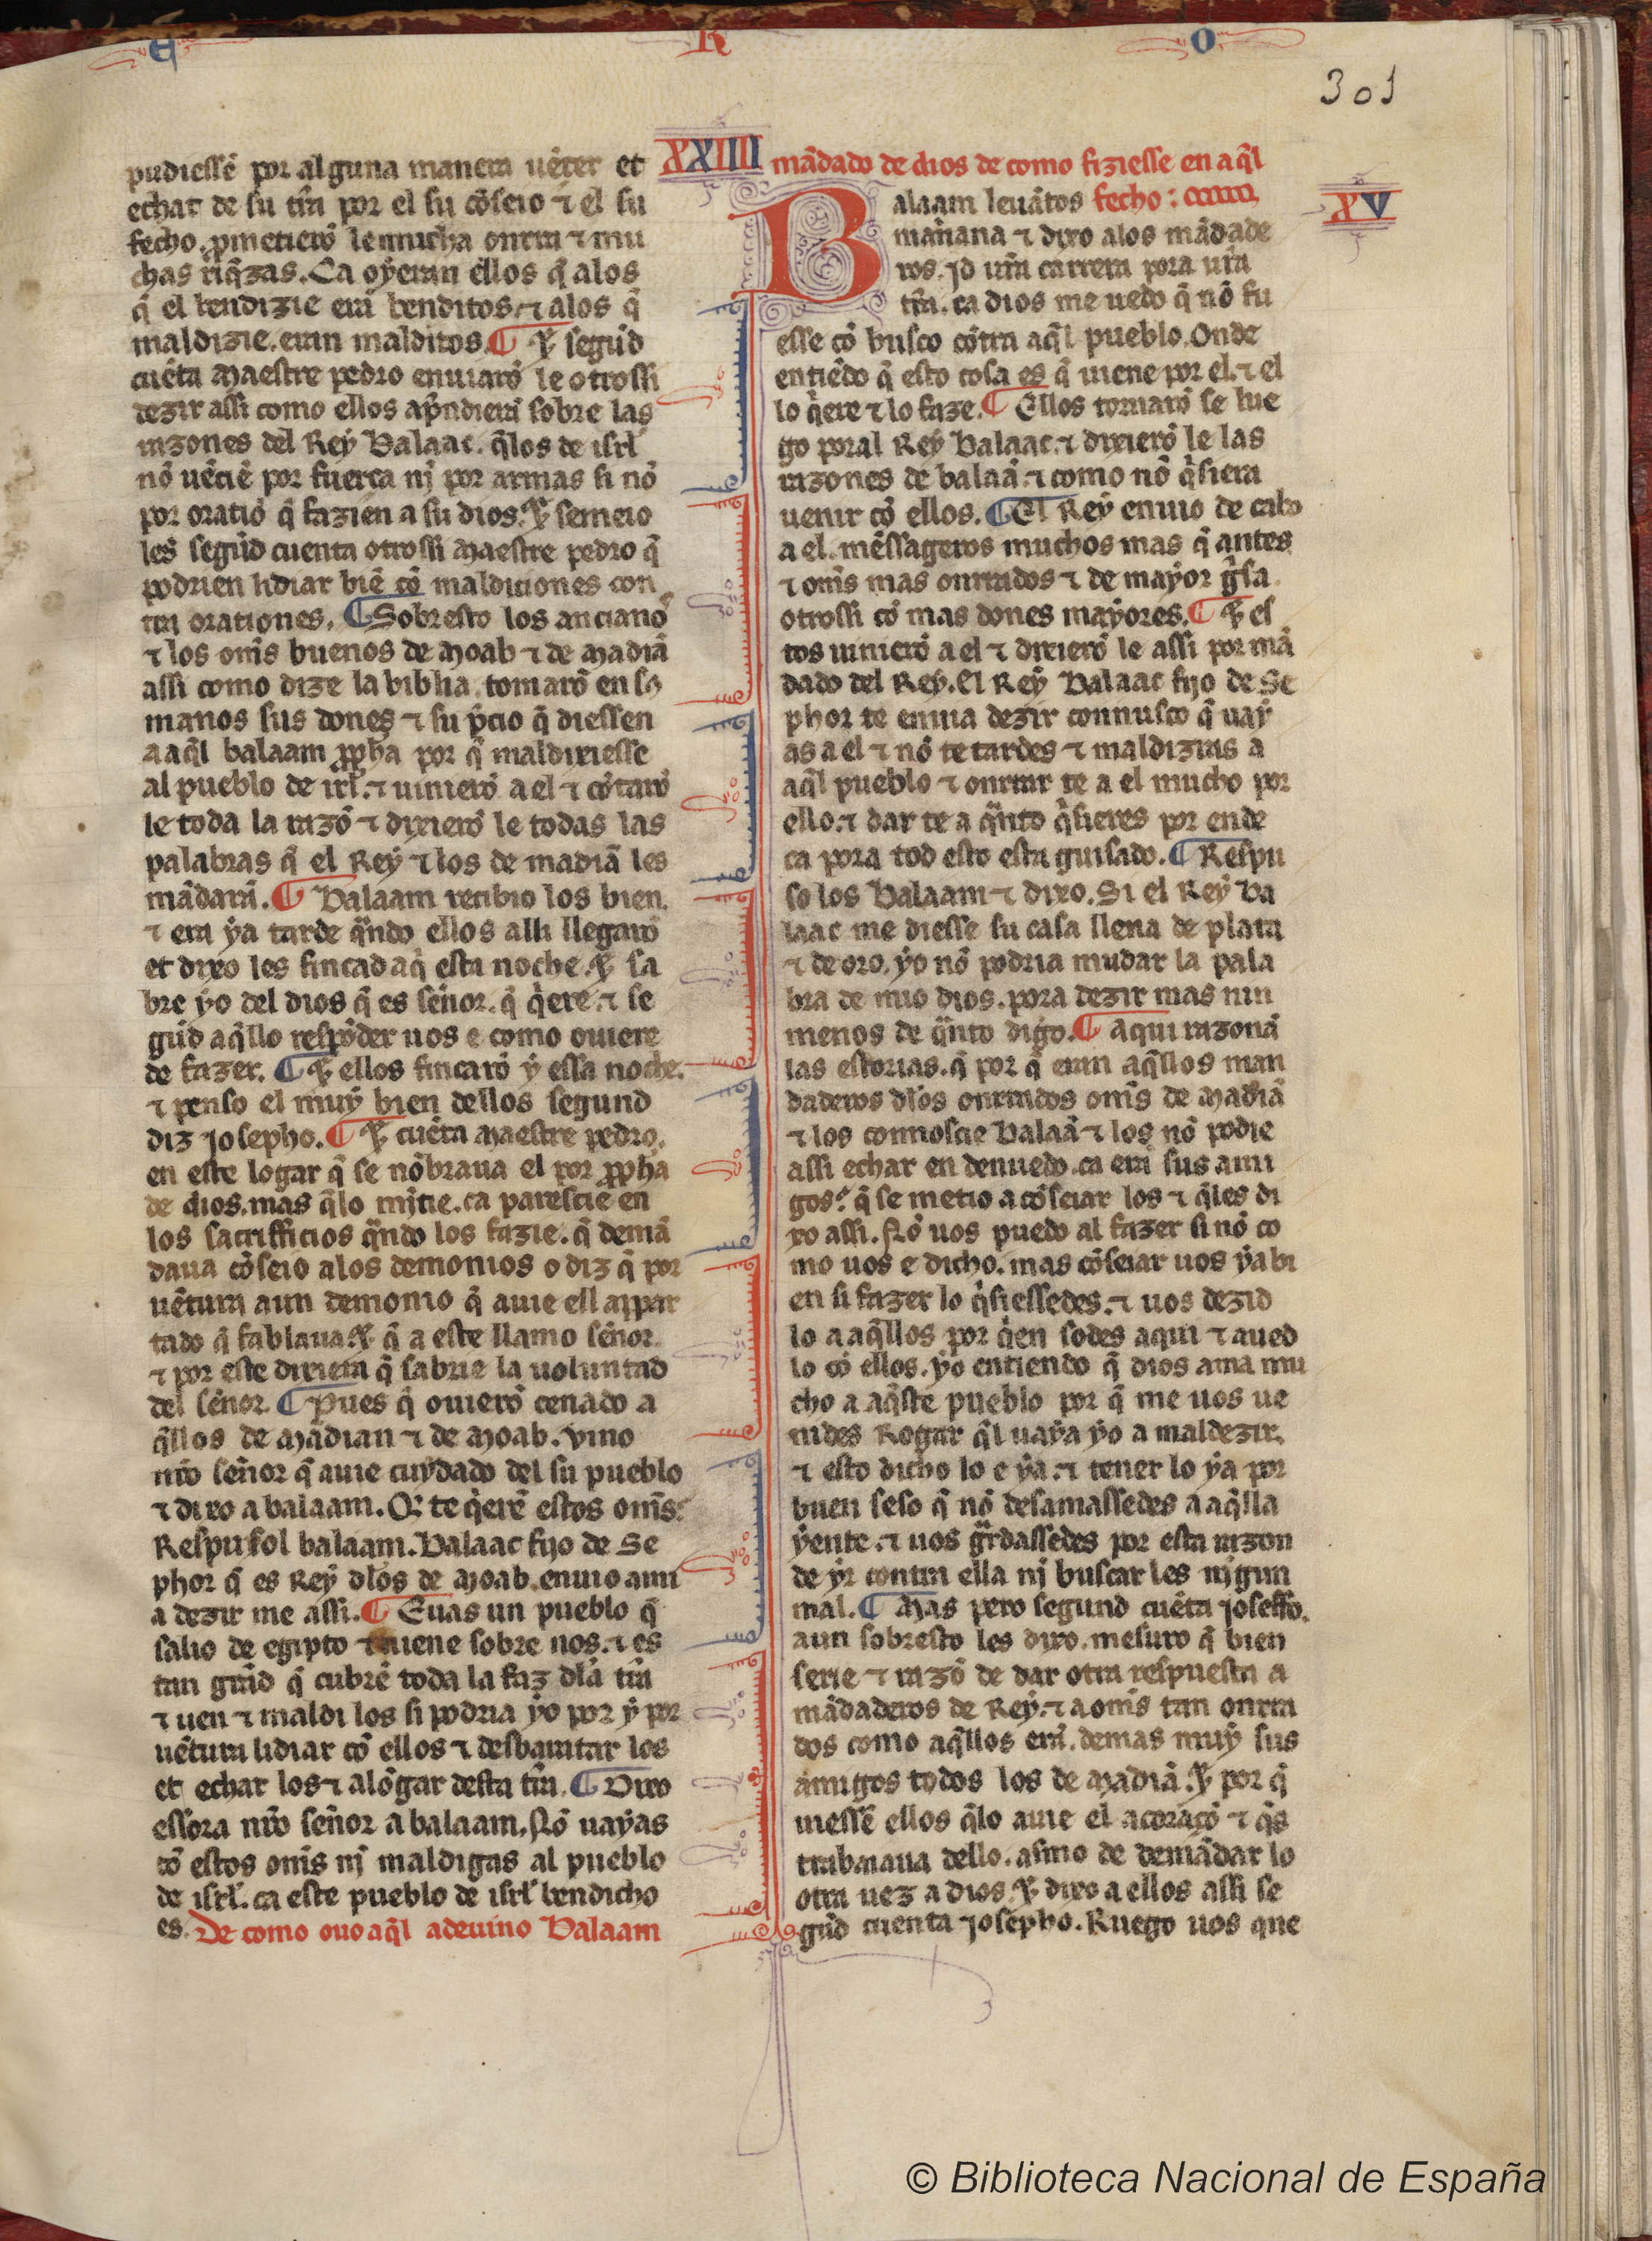 E R O
301
pudiessẽ por alguna manera uẽcer et
echar de su tr̃ra por el su cõseio ⁊ el su
fecho. ꝓmetierõ le mucha onrra ⁊ mu
chas riq̃zas. Ca oyeran ellos q̃ alos
q̃ el bendizie erã benditos. ⁊ alos q̃
maldizie. eran malditos. ¶ E segũd
cuẽta maestre pedro enuiarõ le otrossi
dezir assi como ellos ap̃ndierã sobre las
razones del Rey Balaac. q̃los de isrl̃
nõ uẽcíe por fuerça nj por armas si nõ
por oratiõ q̃ fazien a su dios. E semeio
les segũd cuenta otrossi maestre pedro q̃
podrien lidiar biẽ cõ maldiciones con
tra orationes. ¶ Sobresto los anciano
⁊ los om̃s buenos de moab ⁊ de madiã
assi como dize la biblia. tomarõ en sꝯ
manos sus dones ⁊ su p̃cio q̃ diessen
a aq̃l balaam ꝓph̃a por q̃ maldixiesse
al pueblo de irl̃. ⁊ uinierõ a el ⁊ cõtarõ
le toda la razõ ⁊ dixierõ le todas las
palabras q̃ el Rey ⁊ los de madiã les
mãdarã. ¶ Balaam recibio los bien.
⁊ era ya tarde q̃ndo ellos alli llegarõ
et dixo les fincad aq̃ esta noche. E sa
bre yo del dios q̃ es señor. q̃ q̃ere. ⁊ se
gũd aq̃llo respõder uos e como ouiere
de fazer. ¶ E ellos fincarõ y essa noche.
⁊ penso el muy bien dellos segund
diz josepho. ¶ E cuẽta maestre pedro.
en este logar q̃ se nõbraua el por ꝓph̃a
de dios. mas q̃lo mĩtie. ca parescie en
los sacrifficios q̃ndo los fazie. q̃ demã
daua cõseio alos demonios o diz q̃ por
uẽtura aun demonio q̃ auie ell apar
tado q̃ fablaua. E q̃ a este llamo señor.
⁊ por este dixiera q̃ sabrie la uoluntad
del señor. ¶ Pues q̃ ouierõ cenado a
q̃llos de madian ⁊ de moab. vino
nr̃o señor q̃ auie cuydado del su pueblo
⁊ dixo a balaam. Q̃ te q̃erẽ estos om̃s.
Respusol balaam. Balaac fijo de Se
phor q̃ es Rey dlos de moab. enuio ami
a dezir me assi. ¶ Euas un pueblo q̃
salio de egipto ⁊ uiene sobre nos. ⁊ es
tan grãd q̃ cubrẽ toda la faz dla tr̃ra
⁊ uen ⁊ maldi los si podria yo por y por
uẽtura lidiar cõ ellos ⁊ desbaratar los
et echar los ⁊ alõgar desta tr̃ra. ¶ Dixo
essora nr̃o señor a balaam. Nõ uayas
cõ estos om̃s nj maldigas al pueblo
de isrl̃. ca este pueblo de isrl̃ bendicho
es. De como ouo aq̃l adeuino Balaam
XXIIII mãdado de dios de como fiziesse en aq̃l
XV
Balaam leuãtos fecho:
mañana ⁊ dixo alos mãdade
ros. Jd ur̃a carrera pora ur̃a
tr̃ra. ca dios me uedo q̃ nõ fu
esse cõ busco cõtra aq̃l pueblo. Onde
entiẽdo q̃ esto cosa es q̃ uiene por el. ⁊ el
lo q̃ere ⁊ lo faze. ¶ Ellos tornarõ se lue
go poral Rey Balaac. ⁊ dixierõ le las
razones de balaã. ⁊ como nõ q̃siera
uenir cõ ellos. ¶ El Rey enuio de cabo
a el. mẽssageros muchos mas q̃ antes
⁊ om̃s mas onrrados ⁊ de mayor g̃sa.
otrossi cõ mas dones mayores. ¶ E es
tos uinierõ a el ⁊ dixierõ le assi por mã
dado del Rey. El Rey Balaac fijo de Se
phor te enuia dezir connusco q̃ uay
as a el ⁊ nõ te tardes ⁊ maldizras a
aq̃l pueblo ⁊ onrrar te a el mucho por
ello. ⁊ dar te a q̃nto q̃sieres por ende
ca pora tod esto esta guisado. ¶ Respu
so los Balaam ⁊ dixo. Si el Rey Ba
laac me diesse su casa llena de plata
⁊ de oro. yo nõ podria mudar la pala
bra de mio dios. pora dezir mas nin
menos de q̃nto digo. ¶ Aqui razonã
las estorias. q̃ por q̃ eran aq̃llos man
daderos dlos onrrados om̃s de madiã
⁊ los connoscie Balaã ⁊ los nõ podie
assi echar en denuedo. ca erã sus ami
gos. q̃ se metio a cõseiar los ⁊ q̃les di
xo assi. Nõ uos puedo al fazer si nõ co
mo uos e dicho. mas cõseiar uos ya bi
en si fazer lo q̃siessedes. ⁊ uos dezid
lo a aq̃llos por q̃en sodes aqui ⁊ aued
lo cõ ellos. yo entiendo q̃ dios ama mu
cho a aq̃ste pueblo por q̃ me uos ue
nides Rogar q̃l uaya yo a maldezir.
⁊ esto dicho lo e ya. ⁊ tener lo ya por
buen seso q̃ nõ desamassedes a aq̃lla
yente. ⁊ uos gr̃dassedes por esta razon
de yr contra ella nj buscar les nigun
mal. ¶ Mas pero segund cuẽta joseffo.
aun sobresto les dixo. mesuro q̃ bien
serie ⁊ razõ de dar otra respuesta a
mãdaderos de Rey. ⁊ a om̃s tan onrra
dos como aq̃llos erã. demas muy sus
amigos todos los de madiã. E por q̃
uiessẽ ellos q̃lo auie el acoraçõ ⁊ q̃s
trabaiaua dello. asmo de demãdar lo
otra uez a dios. E dixo a ellos assi se
gũd cuenta josepho. Ruego uos que
© Biblioteca Nacional de España